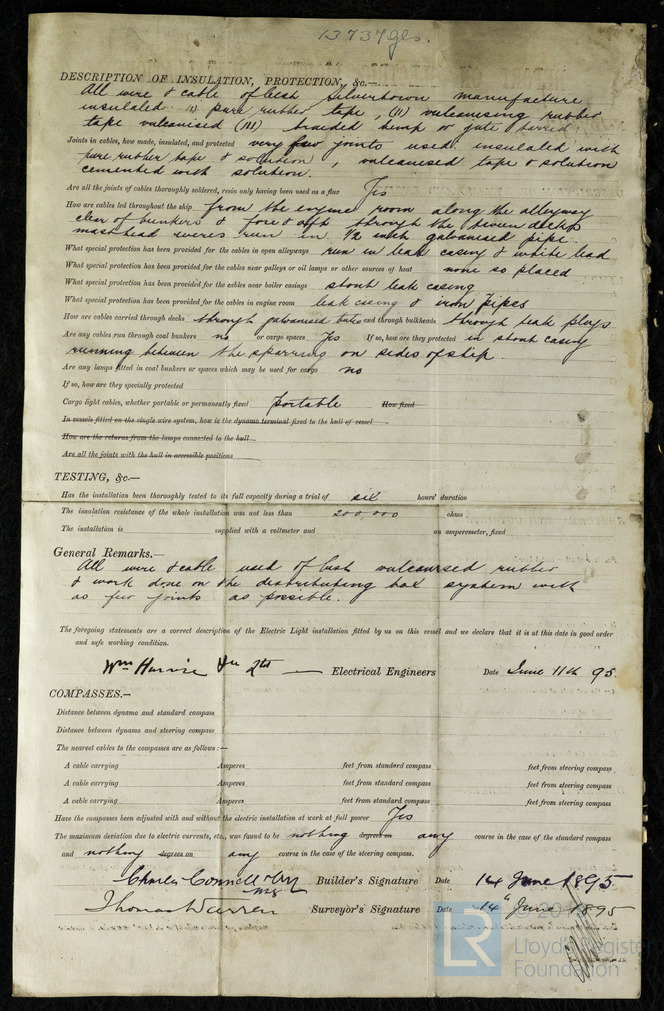 13737 Gls.
DESCRIPTION OF INSULATION, PROTECTION, &c.—
All wire & cable of best Silvertown manufacture
insulated (I) pure rubber tape, (II) vulcanising rubber
tape vulcanised (III) braided hemp or jute tarred.
Joints in cables, how made, insulated, and protected very few joints used. insulated with
pure rubber tape & solution, vulcanised tape & solution
cemented with solution.
Are all the joints of cables thoroughly soldered, resin only having been used as a flux Yes
How are cables led throughout the ship from the engine room along the alleyway
clear of bunkers & fore & aft through the tween decks
mast head wires run in 1/2 inch galvanised pipe.
What special protection has been provided for the cables in open alleyways run in teak casing & white lead
What special protection has been provided for the cables near galleys or oil lamps or other sources of heat none so placed
What special protection has been provided for the cables near boiler casings stout teak casing
What special protection has been provided for the cables in engine room teak casing & iron pipes
How are cables carried through decks through galvanised tubes and through bulkheads through teak plugs
Are any cables run through coal bunkers no or cargo spaces Yes If so, how are they protected in stout casing
running between the sparring on sides of ship.
Are any lamps fitted in coal bunkers or spaces which may be used for cargo no
If so, how are they specially protected
Cargo light cables, whether portable or permanently fixed portable How fixed
In vessels fitted on the single wire system, how is the dynamo terminal fixed to the hull of vessel
How are the returns from the lamps connected to the hull
Are all the joints with the hull in accessible positions
TESTING, &c.—
Has the installation been thoroughly tested to its full capacity during a trial of six hours' duration
The insulation resistance of the whole installation was not less than 200000 ohms.
The installation is supplied with a voltmeter and an amperemeter, fixed
General Remarks.—
All wire & cable used of best vulcanised rubber
& work done on the distributing box system with
as few joints as possible.
The foregoing statements are a correct description of the Electric Light installation fitted by us on this vessel and we declare that it is at this date in good order
and safe working condition.
Wm Harvie Electrical Engineers Date June 11th 95.
COMPASSES.—
Distance between dynamo and standard compass
Distance between dynamo and steering compass
The nearest cables to the compasses are as follows:—
A cable carrying Amperes feet from standard compass feet from steering compass
A cable carrying Amperes feet from standard compass feet from steering compass
A cable carrying Amperes feet from standard compass feet from steering compass
Have the compasses been adjusted with and without the electric installation at work at full power Yes
The maximum deviation due to electric currents, etc., was found to be nothing degrees on any course in the case of the standard compass
and nothing degrees on any course in the case of the steering compass.
Charles Connell & Coy Builder's Signature Date 14 June 1895
Thomas Warren Surveyor's Signature Date 14" June 1895
LR
Lloyd's Register
Foundation